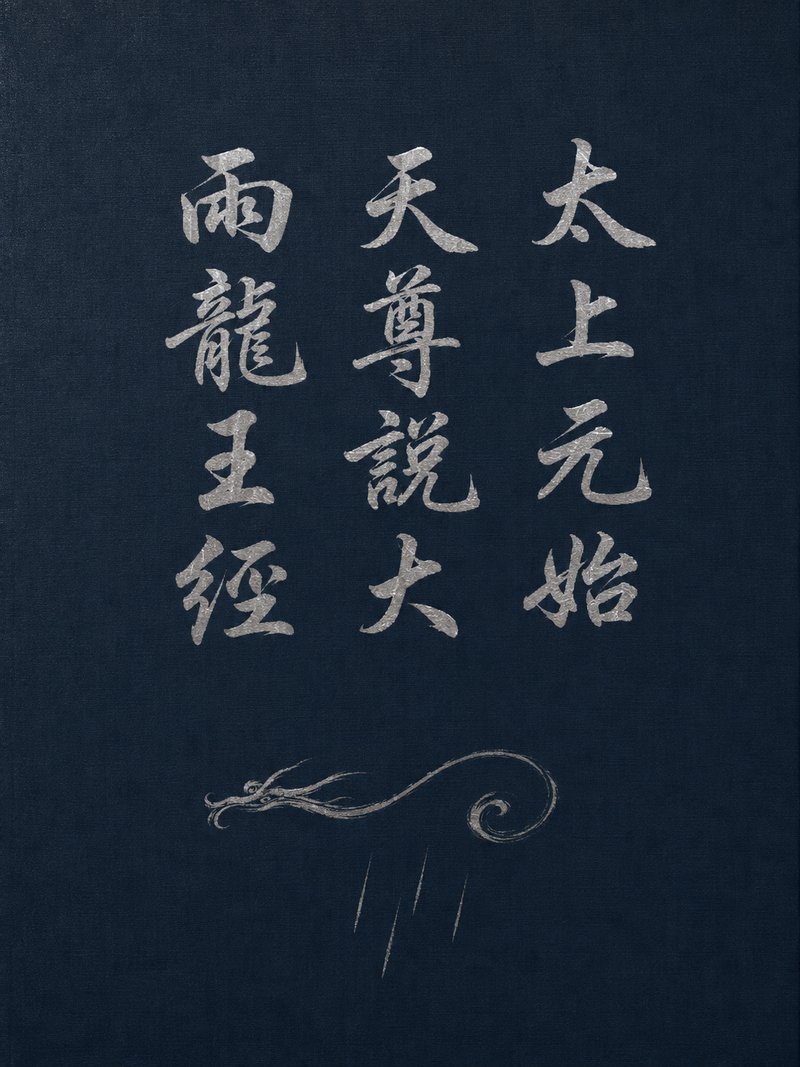 太上元始
天尊說大
雨龍王經